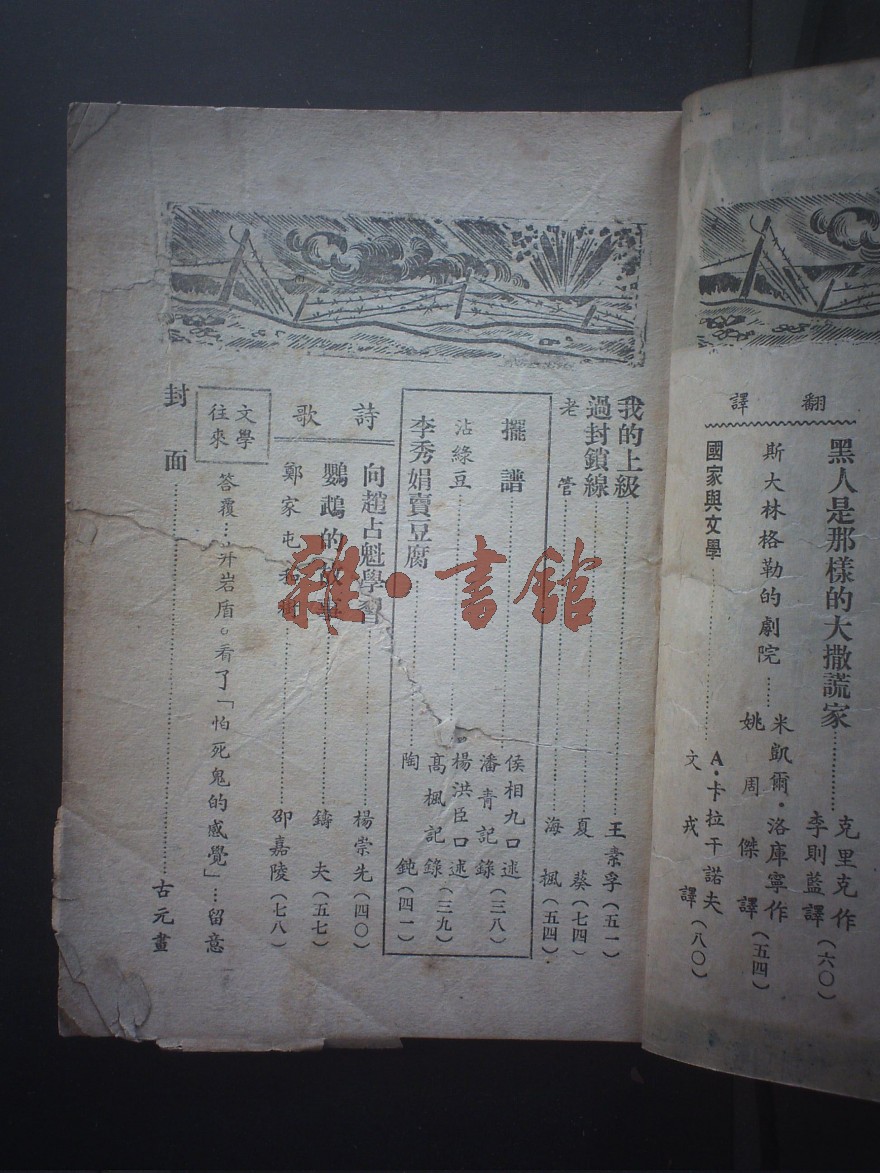 翻譯
黑人是那樣的大撒謊家……克里克作 李則藍譯(六〇)
斯大林格勒的劇院……米凱爾・洛庫寧作 姚周傑譯(五四)
國家與文學……A・卡拉干諾夫 文戎譯(八〇)
我的上級……王素孚(五一)
過封鎖線……夏葵(七四)
老管……海楓(五四)
擺譜……侯相九口述 潘青記錄(三八)
沾綠豆……楊洪臣口述 高楓記錄(三九)
李秀娟賣豆腐……陶鈍(四一)
詩歌
向趙占魁學習……楊崇先(四〇)
鸚鵡的故事……鑄夫(五七)
鄭家屯……邵嘉陵(七八)
文學往來
答覆……
看了「怕死鬼的感覺」…留意
封面……古元畫
雜・書館